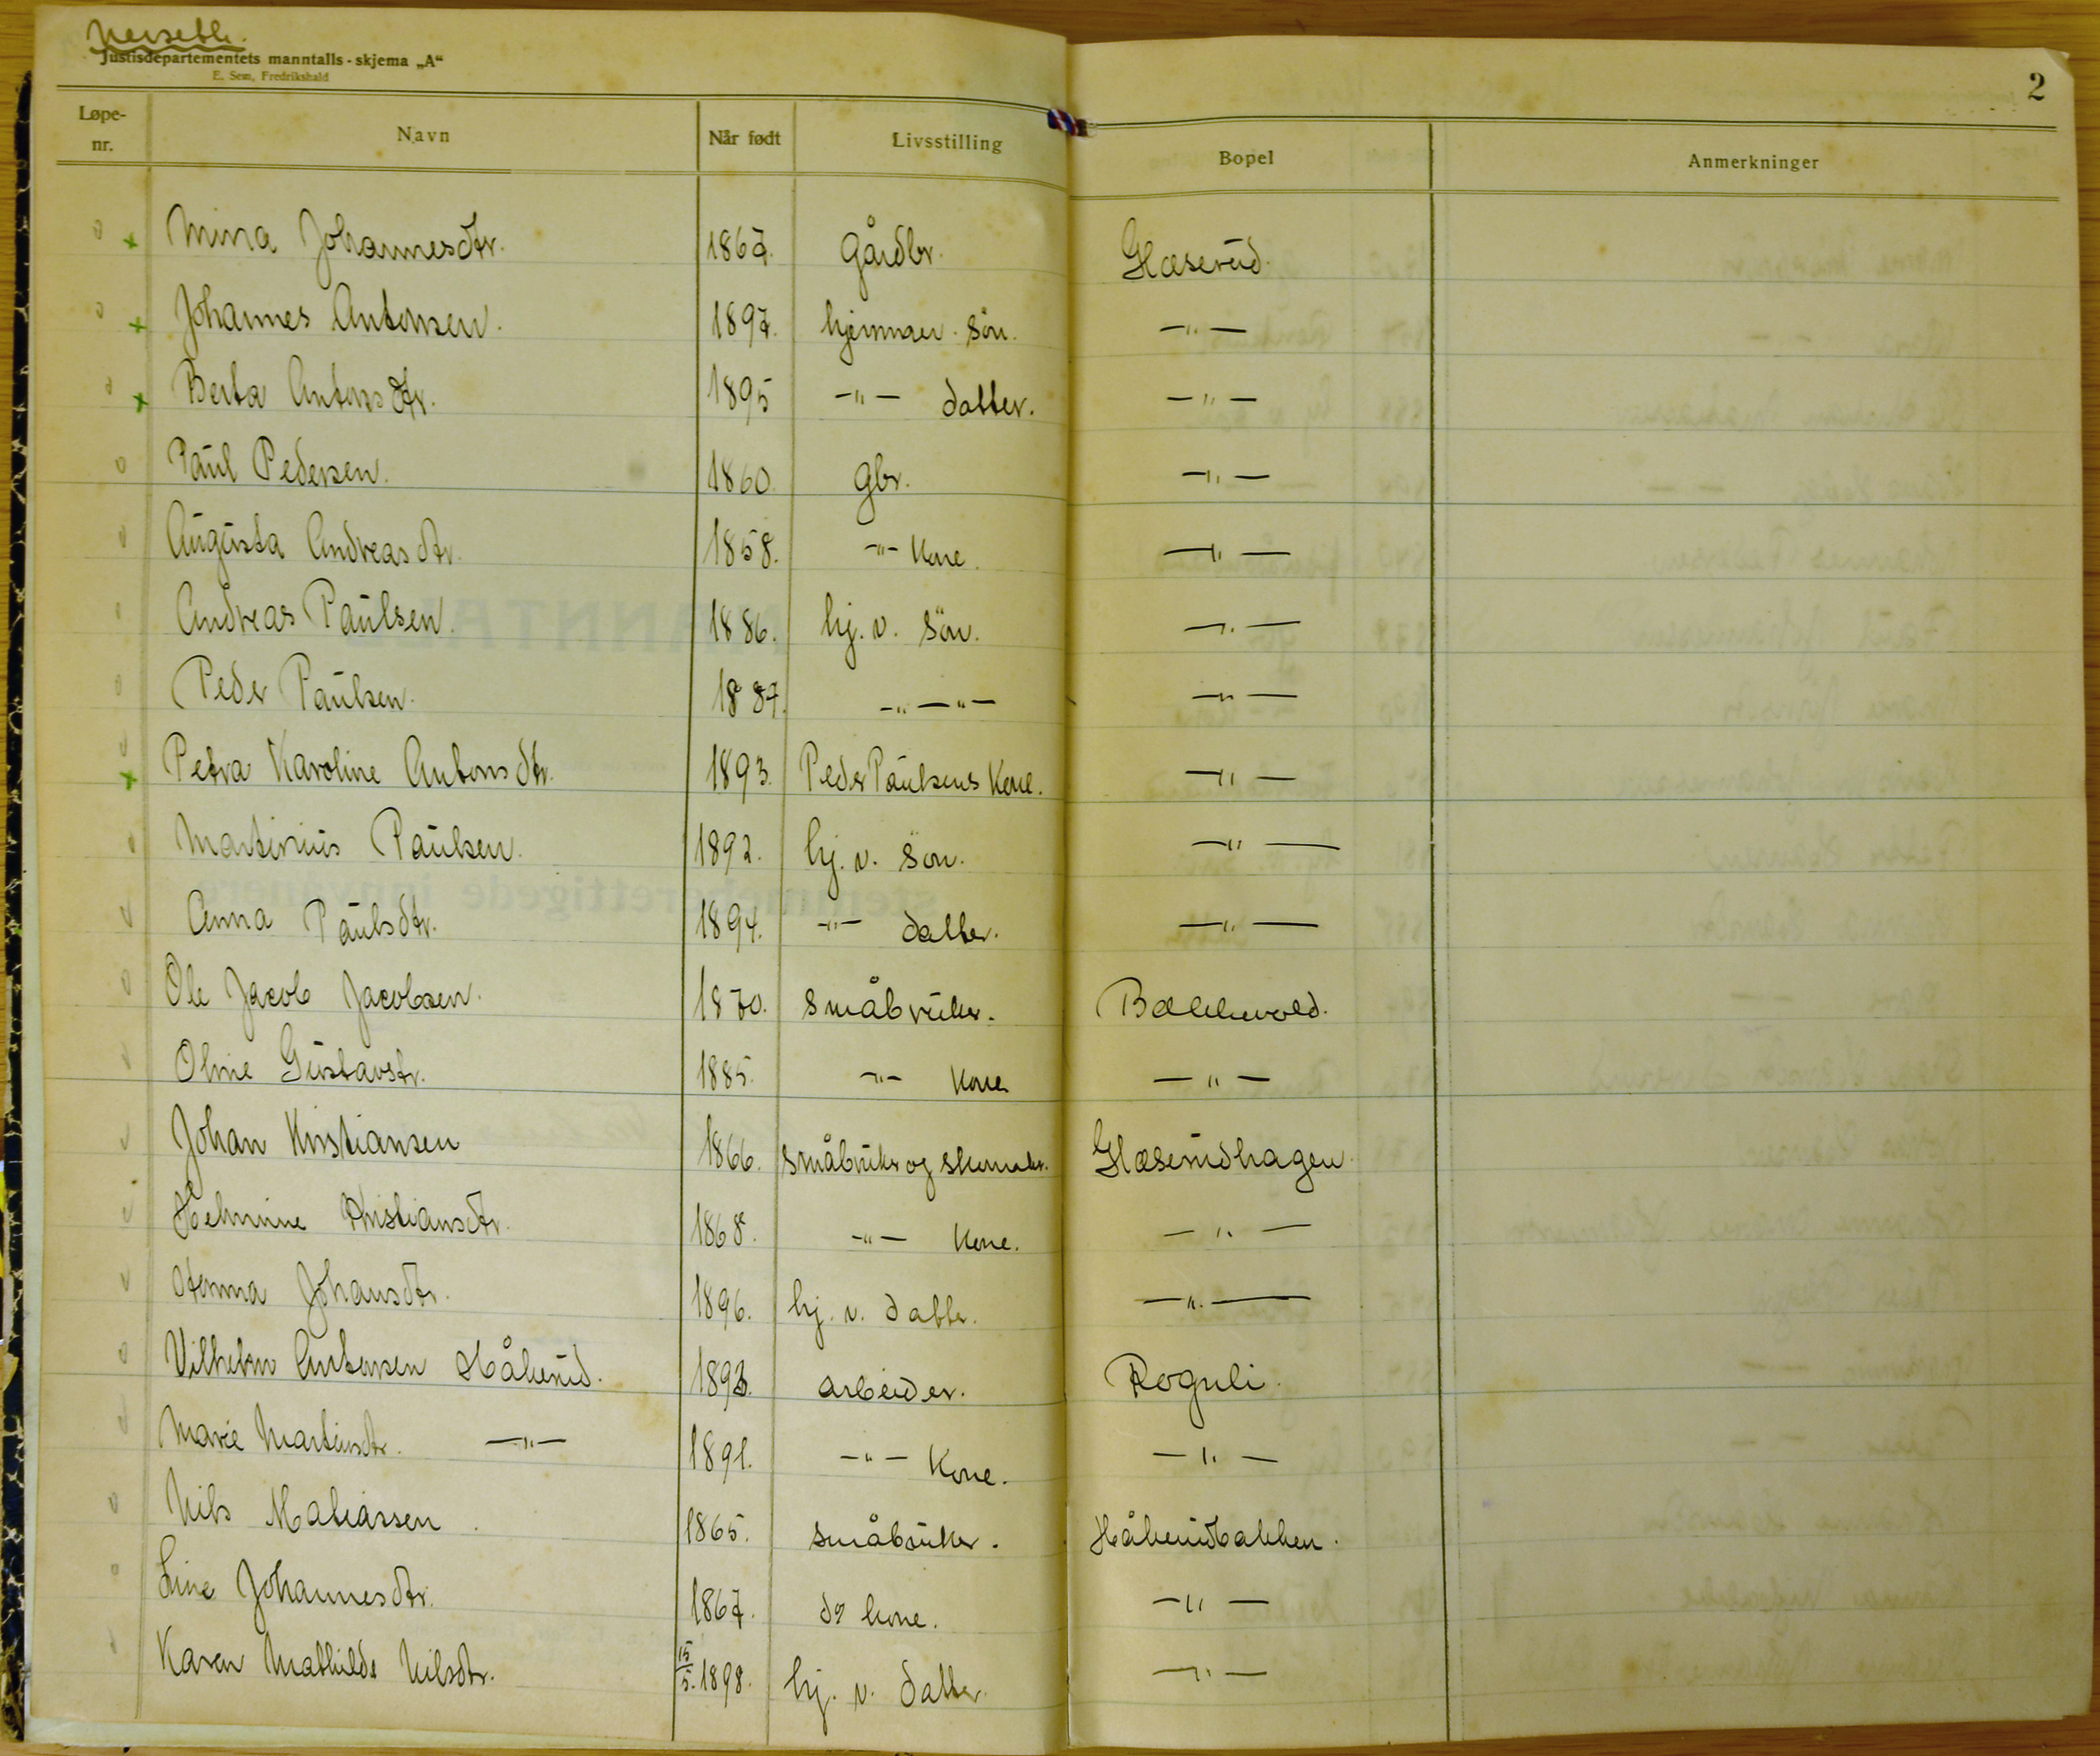 Nerseth.
Justisdepartementets manntalls-skjema „A“
E. Sem, Fredrikshald
2
Løpe-nr. Navn Når født Livsstilling Bopel Anmerkninger
o x Mina Johannesdtr. 1867. Gårdbr. Glæserud.
o x Johannes Antonsen. 1897. hjemmev. søn. —"—
o x Berta Antonsdtr. 1895 -"- datter. —"—
o Paul Pedersen. 1860. Gbr. —"—
Augusta Andreasdtr. 1858. -"- Kone. —"—
Andreas Paulsen. 1886. hj. v. søn. —"—
Peder Paulsen. 1887. -"-"- —"—
x Petra Karoline Antonsdtr. 1893. Peder Paulsens Kone. —"—
Martinius Paulsen. 1892. hj. v. søn. —"—
Anna Paulsdtr. 1894. -"- datter. —"—
Ole Jacob Jacobsen. 1870. Småbruker. Bækkevold.
Oline Gustavstr. 1885. -"- Kone —"—
Johan Kristiansen 1866. Småbruker og skomaker. Glæserudhagen.
Helmine Kristiansdtr. 1868. -"- Kone. —"—
Hanna Johansdtr. 1896. hj. v. datter. —"—
Vilhelm Antonsen Håkerud. 1893. arbeider. Rognli.
Marie Martinsdtr. —"— 1891. -"- Kone. —"—
Nils Matiassen. 1865. småbruker. Håkerudbakken.
Line Johannesdtr. 1867. do kone. —"—
Karen Mathilde Nilsdtr. 15/5. 1898. hj. v. datter. —"—